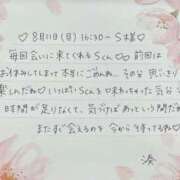 ♡ 8月11日(月) 16:30〜 S様 ♡
毎回会いに来てくれるSくん♡♡ 前回は
お休みしてしまって本当にごめんね、その分
楽しんだね♡ いっぱいSくんを味わっちゃった気分
時間が足りなくて、気づけばあっという間だ
またすぐ会えるのを今から待ってるね♡
湊